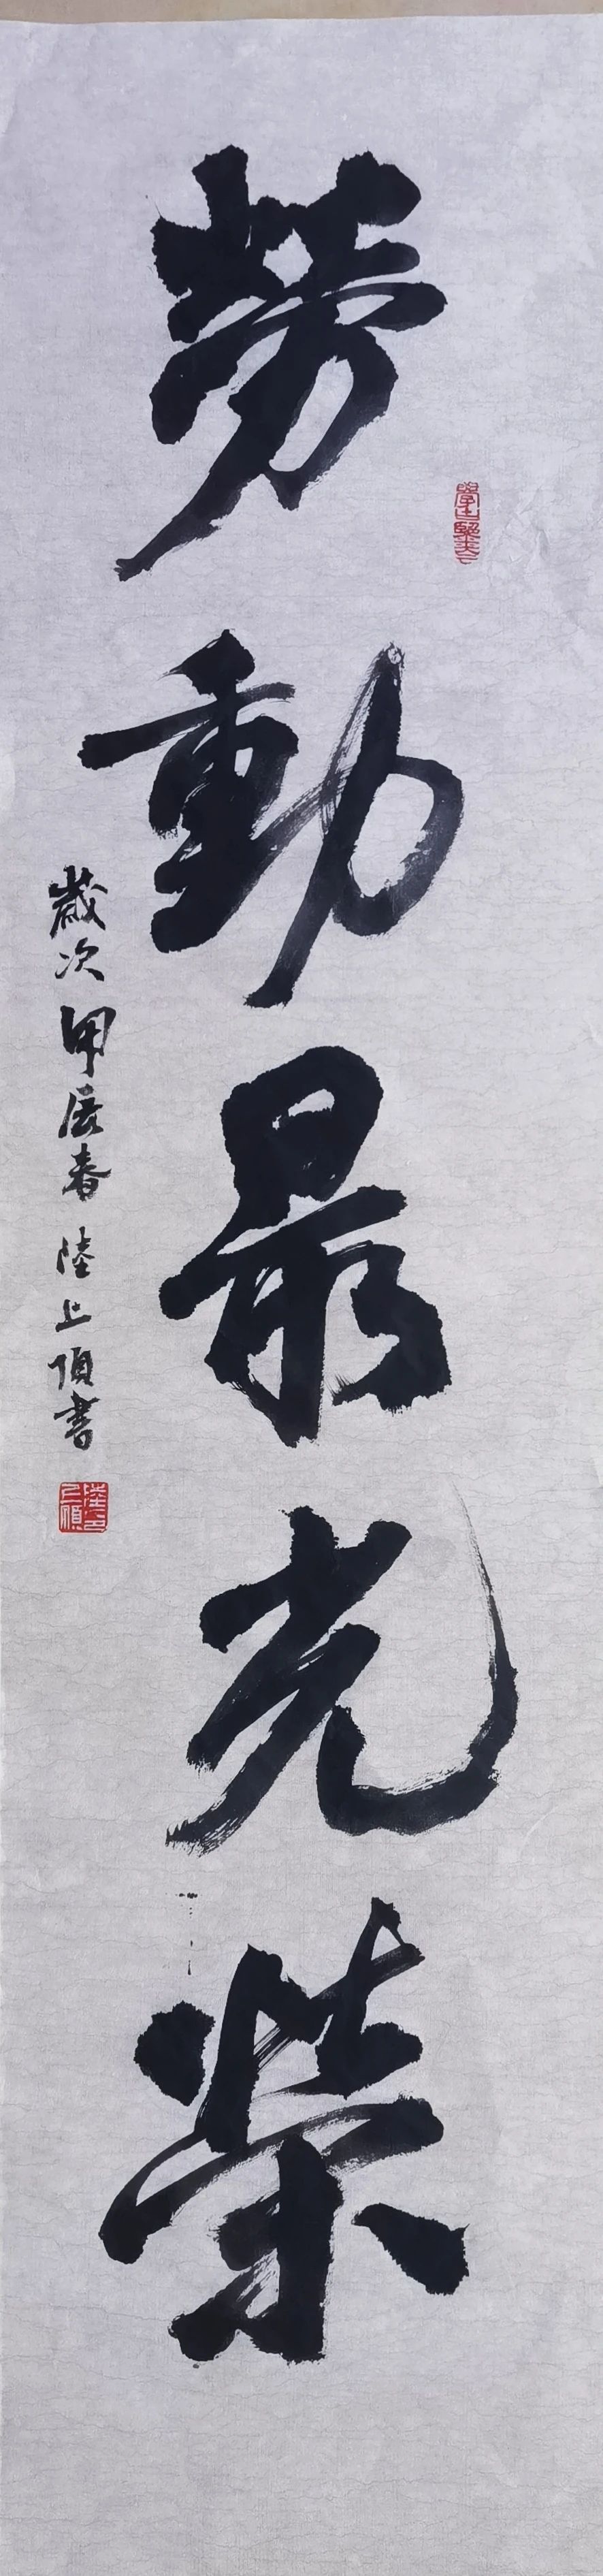 勞動最光榮
歲次甲辰春陸上頂書